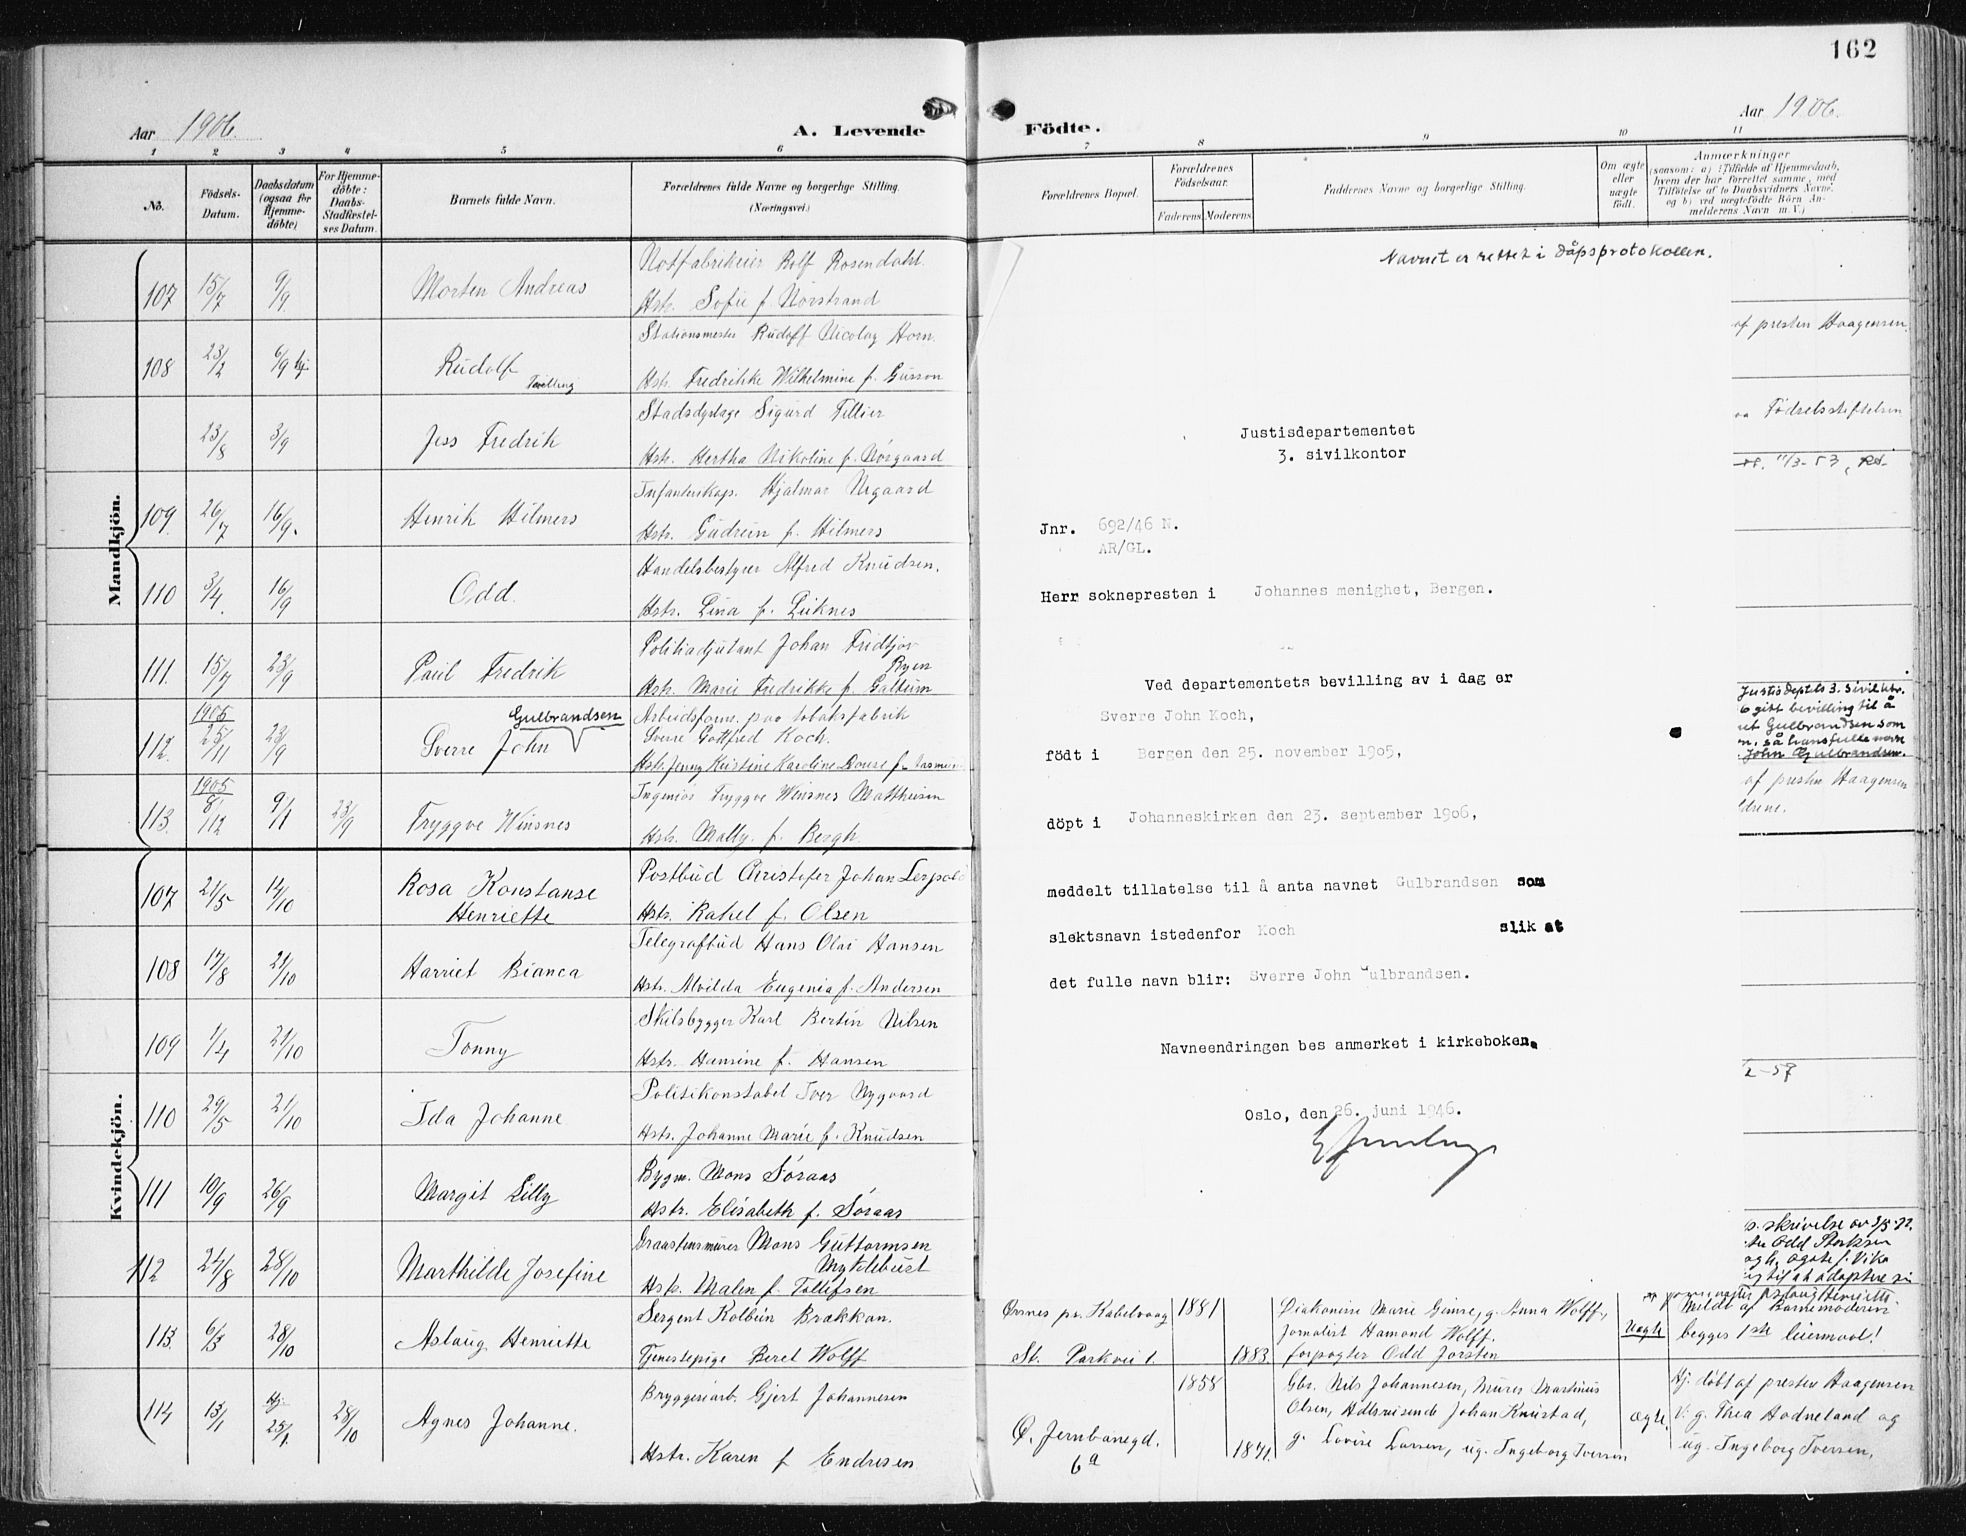 162
Aar 1906.
A. Levende
Födte.
Aar 1906.
1 2 3 4 5 6 7 8 9 10 11
No.
Födsels-
Datum.
Daabsdatum
(ogsaa för
Hjemme-
döbte)
For Hjemme-
döbte:
Daabs-
Stadfæstel-
ses Datum.
Barnets fulde Navn.
Forældrenes fulde Navne og borgerlige Stilling.
(Næringsvei.)
Forældrenes Bopæl.
Forældrenes
Födselsaar.
Faderens Moderens
Faddernes Navne og borgerlige Stilling.
Om ægte
eller
uægte
födt.
Anmærkninger
(saasom: a) i Tilfælde af Hjemmedaab,
hvem der har forrettet samme, med
Tilföielse af to Daabsvidners Navne.
og b) ved uægtefödte Börn An-
melderens Navn m. V.)
Mandkjön.
107 15/7 9/9 Morten Andreas
Notfabrikeier Rolf Rosendahl.
Hstr. Sofie f. Norstrand
108 23/2 6/9 hj. Rudolf Tvilling
Stationsmester Rudolf Nicolay Horn.
Hstr. Fredrikke Wilhelmine f. Gusson
23/8 3/9 Jess Fredrik
Sigurd Tillier
Hstr. Hertha Nikoline f. Norgaard
109. 26/7 16/9. Henrik Hilmers
Infanterikap. Hjalmar Negaard
Hstr. Gudrun f. Hilmers
110 3/4. 16/9 Odd.
Handelsbestyrer Alfred Knudsen.
Hstr. Lina f. Luknes
111. 15/7 23/9 Paul Fredrik
Politiadjutant Johan Fridtjov
Ryen
Hstr. Marie Fredrikke f. Galtum
112. 1905 25/11 23/9 Sverre John Gulbrandsen
Arbeidsform. paa tobaksfabrik
Sverre Gottfred Koch.
Hstr. Jenny Kristine Karoline Louise f.
113. 1905 8/12 9/1 23/9 Tryggve Winsnes
Ingeniør Tryggve Winsnes Matthiesen
Hstr. Mally f. Bergh.
Kvindekjön.
107 21/5 14/10 Rosa Konstanse
Henriette
Postbud Christofer Johan Lerpold
Hstr. Rahel f. Olsen
108 17/8 21/10 Harriet Bianca
Telegrafbud Hans Olai Hansen
Hstr. Alvilda Eugenia f. Andersen
109 1/4 21/10 Tonny
Skibsbygger Karl Bertin Nilsen
Hstr. Hansine f. Hansen
110 29/5 21/10 Ida Johanne
Politikonstabel Iver Nygaard
Hstr. Johanne Marie f. Knudsen
111 10/9 26/9 Margit Lilly
Bygm. Mons Søraas
Hstr. Elisabeth f. Søraas
112 24/8 28/10 Marthilde Josefine
Graastensmurer Mons Guttormsen
Myklebust
Hstr. Malen f. Tollefsen
113. 6/3 28/10 Aslaug Henriette
Sergent Kolbein Brækkan.
Tjenestepige Beret Wolff
Ørsnes pr. Kabelvaag 1881
St. Parkvei 1. 1883.
Diakonisse Marie Gimse, g. Anna Wolff,
Jornalist Hamond Wolff.
forpagter Odd Jorsten
Uægte
Meldt af Barnemoderen
begges 1ste leiermaal!
114 13/1 Hj. 25/1. 28/10 Agnes Johanne.
Bryggesiarb. Gjert Johannesen
Hstr. Karen f Endresen
Ø. Jernbanegd.
6a
1858
1871.
Gbr. Nils Johannesen, Murer Martinus
Olsen, Hdlsreisende Johan Knustad,
g. Lovise Larsen, ug. Ingeborg Iversen
ægte
Hj. døbt af presten Haagensen
V: g. Thea Hodneland og
ug. Ingeborg Iversen,
Navnet er rettet i dåpsprotokollen.
Justisdepartementet
3. sivilkontor
Jnr. 692/46 N.
AR/GL.
Herr soknepresten i Johannes menighet, Bergen.
Ved departementets bevilling av i dag er
Sverre John Koch,
født i Bergen den 25. november 1905,
döpt i Johanneskirken den 23. september 1906,
meddelt tillatelse til å anta navnet Gulbrandsen som
slektsnavn istedenfor Koch slik at
det fulle navn blir: Sverre John Gulbrandsen.
Navneendringen bes anmerket i kirkeboken.
Oslo, den 26. juni 1946.
af presten Haagensen,
Fødselsstiftelsen
11/3-53,
Justisdept.ts 3. sivilktr.
6 gitt bevilling til å
Gulbrandsen som
så hans fulle navn
John Gulbrandsen.
af presten Haagensen
ldrene.
2-57
skrivelse av 3/5 22.
Odd Storksen
Agate f. Vika
til at adoptere